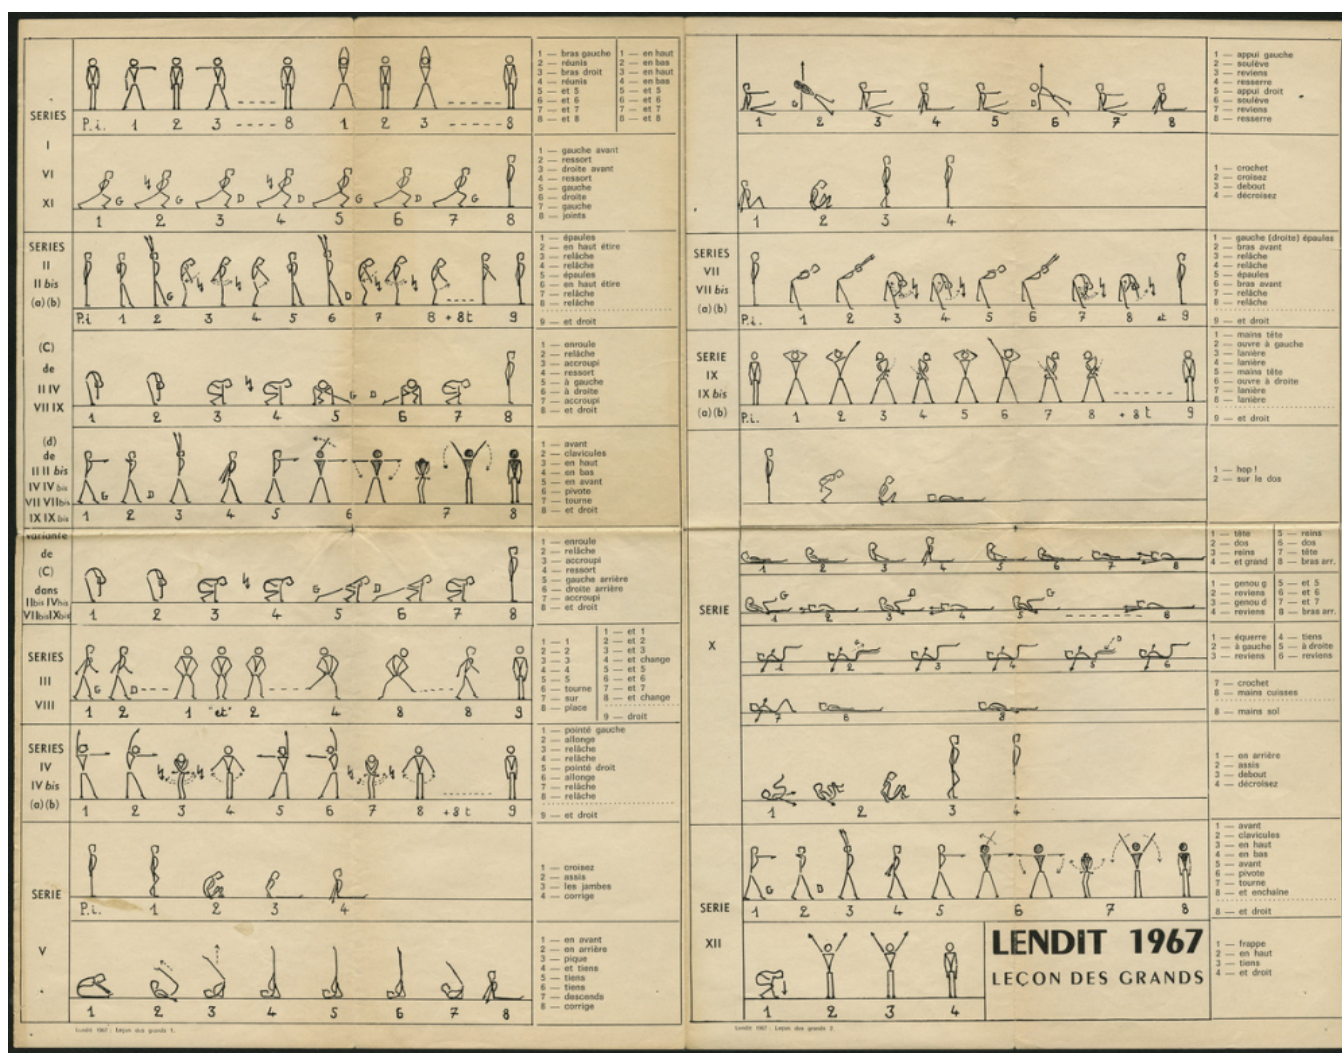 SERIES
I
VI
XI
P.i. 1 2 3 ---- 8 1 2 3 ----- 8
1 — bras gauche
2 — réunis
3 — bras droit
4 — réunis
5 — et 5
6 — et 6
7 — et 7
8 — et 8
1 — en haut
2 — en bas
3 — en haut
4 — en bas
5 — et 5
6 — et 6
7 — et 7
8 — et 8
G G D D G D G
1 2 3 4 5 6 7 8
1 — gauche avant
2 — ressort
3 — droite avant
4 — ressort
5 — gauche
6 — droite
7 — gauche
8 — joints
SERIES
II
II bis
(a) (b)
G D
P.i 1 2 3 4 5 6 7 8 + 8t 9
1 — épaules
2 — en haut étire
3 — relâche
4 — relâche
5 — épaules
6 — en haut étire
7 — relâche
8 — relâche
9 — et droit
(C)
de
II IV
VII IX
G D
1 2 3 4 5 6 7 8
1 — enroule
2 — relâche
3 — accroupi
4 — ressort
5 — à gauche
6 — à droite
7 — accroupi
8 — et droit
(d)
de
II II bis
IV IV bis
VII VII bis
IX IX bis
G D
1 2 3 4 5 6 7 8
1 — avant
2 — clavicules
3 — en haut
4 — en bas
5 — en avant
6 — pivote
7 — tourne
8 — et droit
variante
de
(C)
dans
II bis IV bis
VII bis IX bis
G D
1 2 3 4 5 6 7 8
1 — enroule
2 — relâche
3 — accroupi
4 — ressort
5 — gauche arrière
6 — droite arrière
7 — accroupi
8 — et droit
SERIES
III
VIII
G D
1 2 1 "et" 2 4 8 8 9
1 — 1
2 — 2
3 — 3
4 — 4
5 — 5
6 — tourne
7 — sur
8 — place
1 — et 1
2 — et 2
3 — et 3
4 — et change
5 — et 5
6 — et 6
7 — et 7
8 — et change
9 — droit
SERIES
IV
IV bis
(a) (b)
1 2 3 4 5 6 7 8 + 8 t 9
1 — pointé gauche
2 — allonge
3 — relâche
4 — relâche
5 — pointé droit
6 — allonge
7 — relâche
8 — relâche
9 — et droit
SERIE
V
P.i. 1 2 3 4
1 — croisez
2 — assis
3 — les jambes
4 — corrige
1 2 3 4 5 6 7 8
1 — en avant
2 — en arrière
3 — pique
4 — et tiens
5 — tiens
6 — tiens
7 — descends
8 — corrige
Lendit 1967 - Leçon des grands 1.
G D
1 2 3 4 5 6 7 8
1 — appui gauche
2 — soulève
3 — reviens
4 — resserre
5 — appui droit
6 — soulève
7 — reviens
8 — resserre
1 2 3 4
1 — crochet
2 — croisez
3 — debout
4 — décroisez
SERIES
VII
VII bis
(a) (b)
P.i. 1 2 3 4 5 6 7 8 et 9
1 — gauche (droite) épaules
2 — bras avant
3 — relâche
4 — relâche
5 — épaules
6 — bras avant
7 — relâche
8 — relâche
9 — et droit
SERIE
IX
IX bis
(a) (b)
P.i. 1 2 3 4 5 6 7 8 + 8 t 9
1 — mains tête
2 — ouvre à gauche
3 — lanière
4 — lanière
5 — mains tête
6 — ouvre à droite
7 — lanière
8 — lanière
9 — et droit
1 — hop !
2 — sur le dos
SERIE
X
1 2 3 4 5 6 7 8
1 — tête
2 — dos
3 — reins
4 — et grand
5 — reins
6 — dos
7 — tête
8 — bras arr.
G D G
1 2 3 4 5 8
1 — genou g
2 — reviens
3 — genou d
4 — reviens
5 — et 5
6 — et 6
7 — et 7
8 — bras arr.
1 2 3 4 5 6
1 — équerre
2 — à gauche
3 — reviens
4 — tiens
5 — à droite
6 — reviens
7 8 8
7 — crochet
8 — mains cuisses
8 — mains sol
1 2 3 4
1 — en arrière
2 — assis
3 — debout
4 — décroisez
SERIE
XII
G D
1 2 3 4 5 6 7 8
1 — avant
2 — clavicules
3 — en haut
4 — en bas
5 — avant
6 — pivote
7 — tourne
8 — et enchaîne
8 — et droit
1 2 3 4
LENDIT 1967
LEÇON DES GRANDS
1 — frappe
2 — en haut
3 — tiens
4 — et droit
Lendit 1967 - Leçon des grands 2.